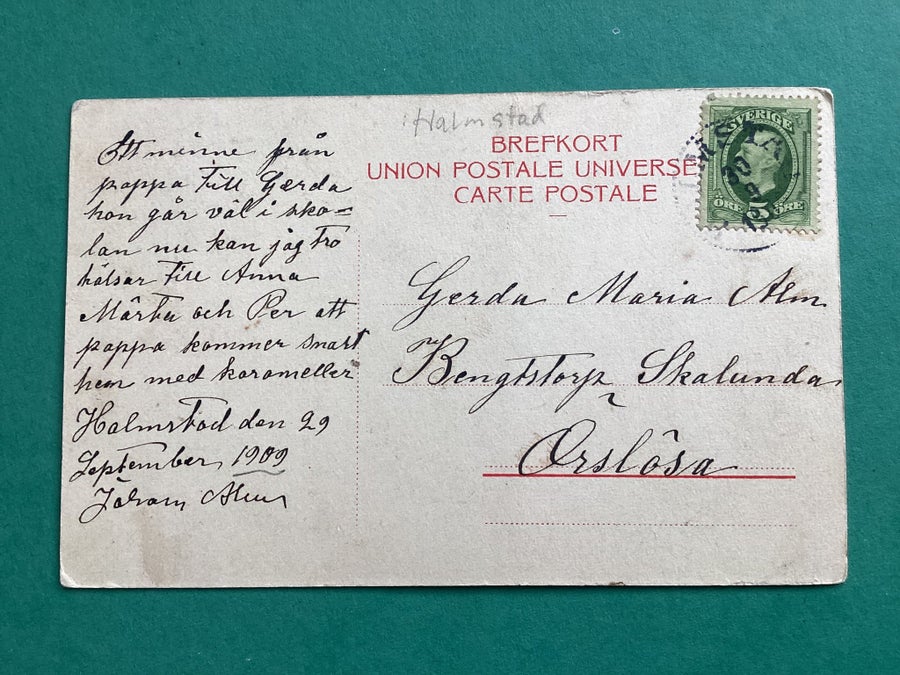 Halmstad
BREFKORT
UNION POSTALE UNIVERSE
CARTE POSTALE
SVERIGE
ÖRE 5 ÖRE
Ett minne från
pappa till Gerda
hon går väl i sko=
lan nu kan jag tro
hälsar till Anna
Märta och Per att
pappa kommer snart
hem med karameller
Halmstad den 29
September 1909
Johan Alm
Gerda Maria Alm
Bengtstorp Skalunda
Örslösa